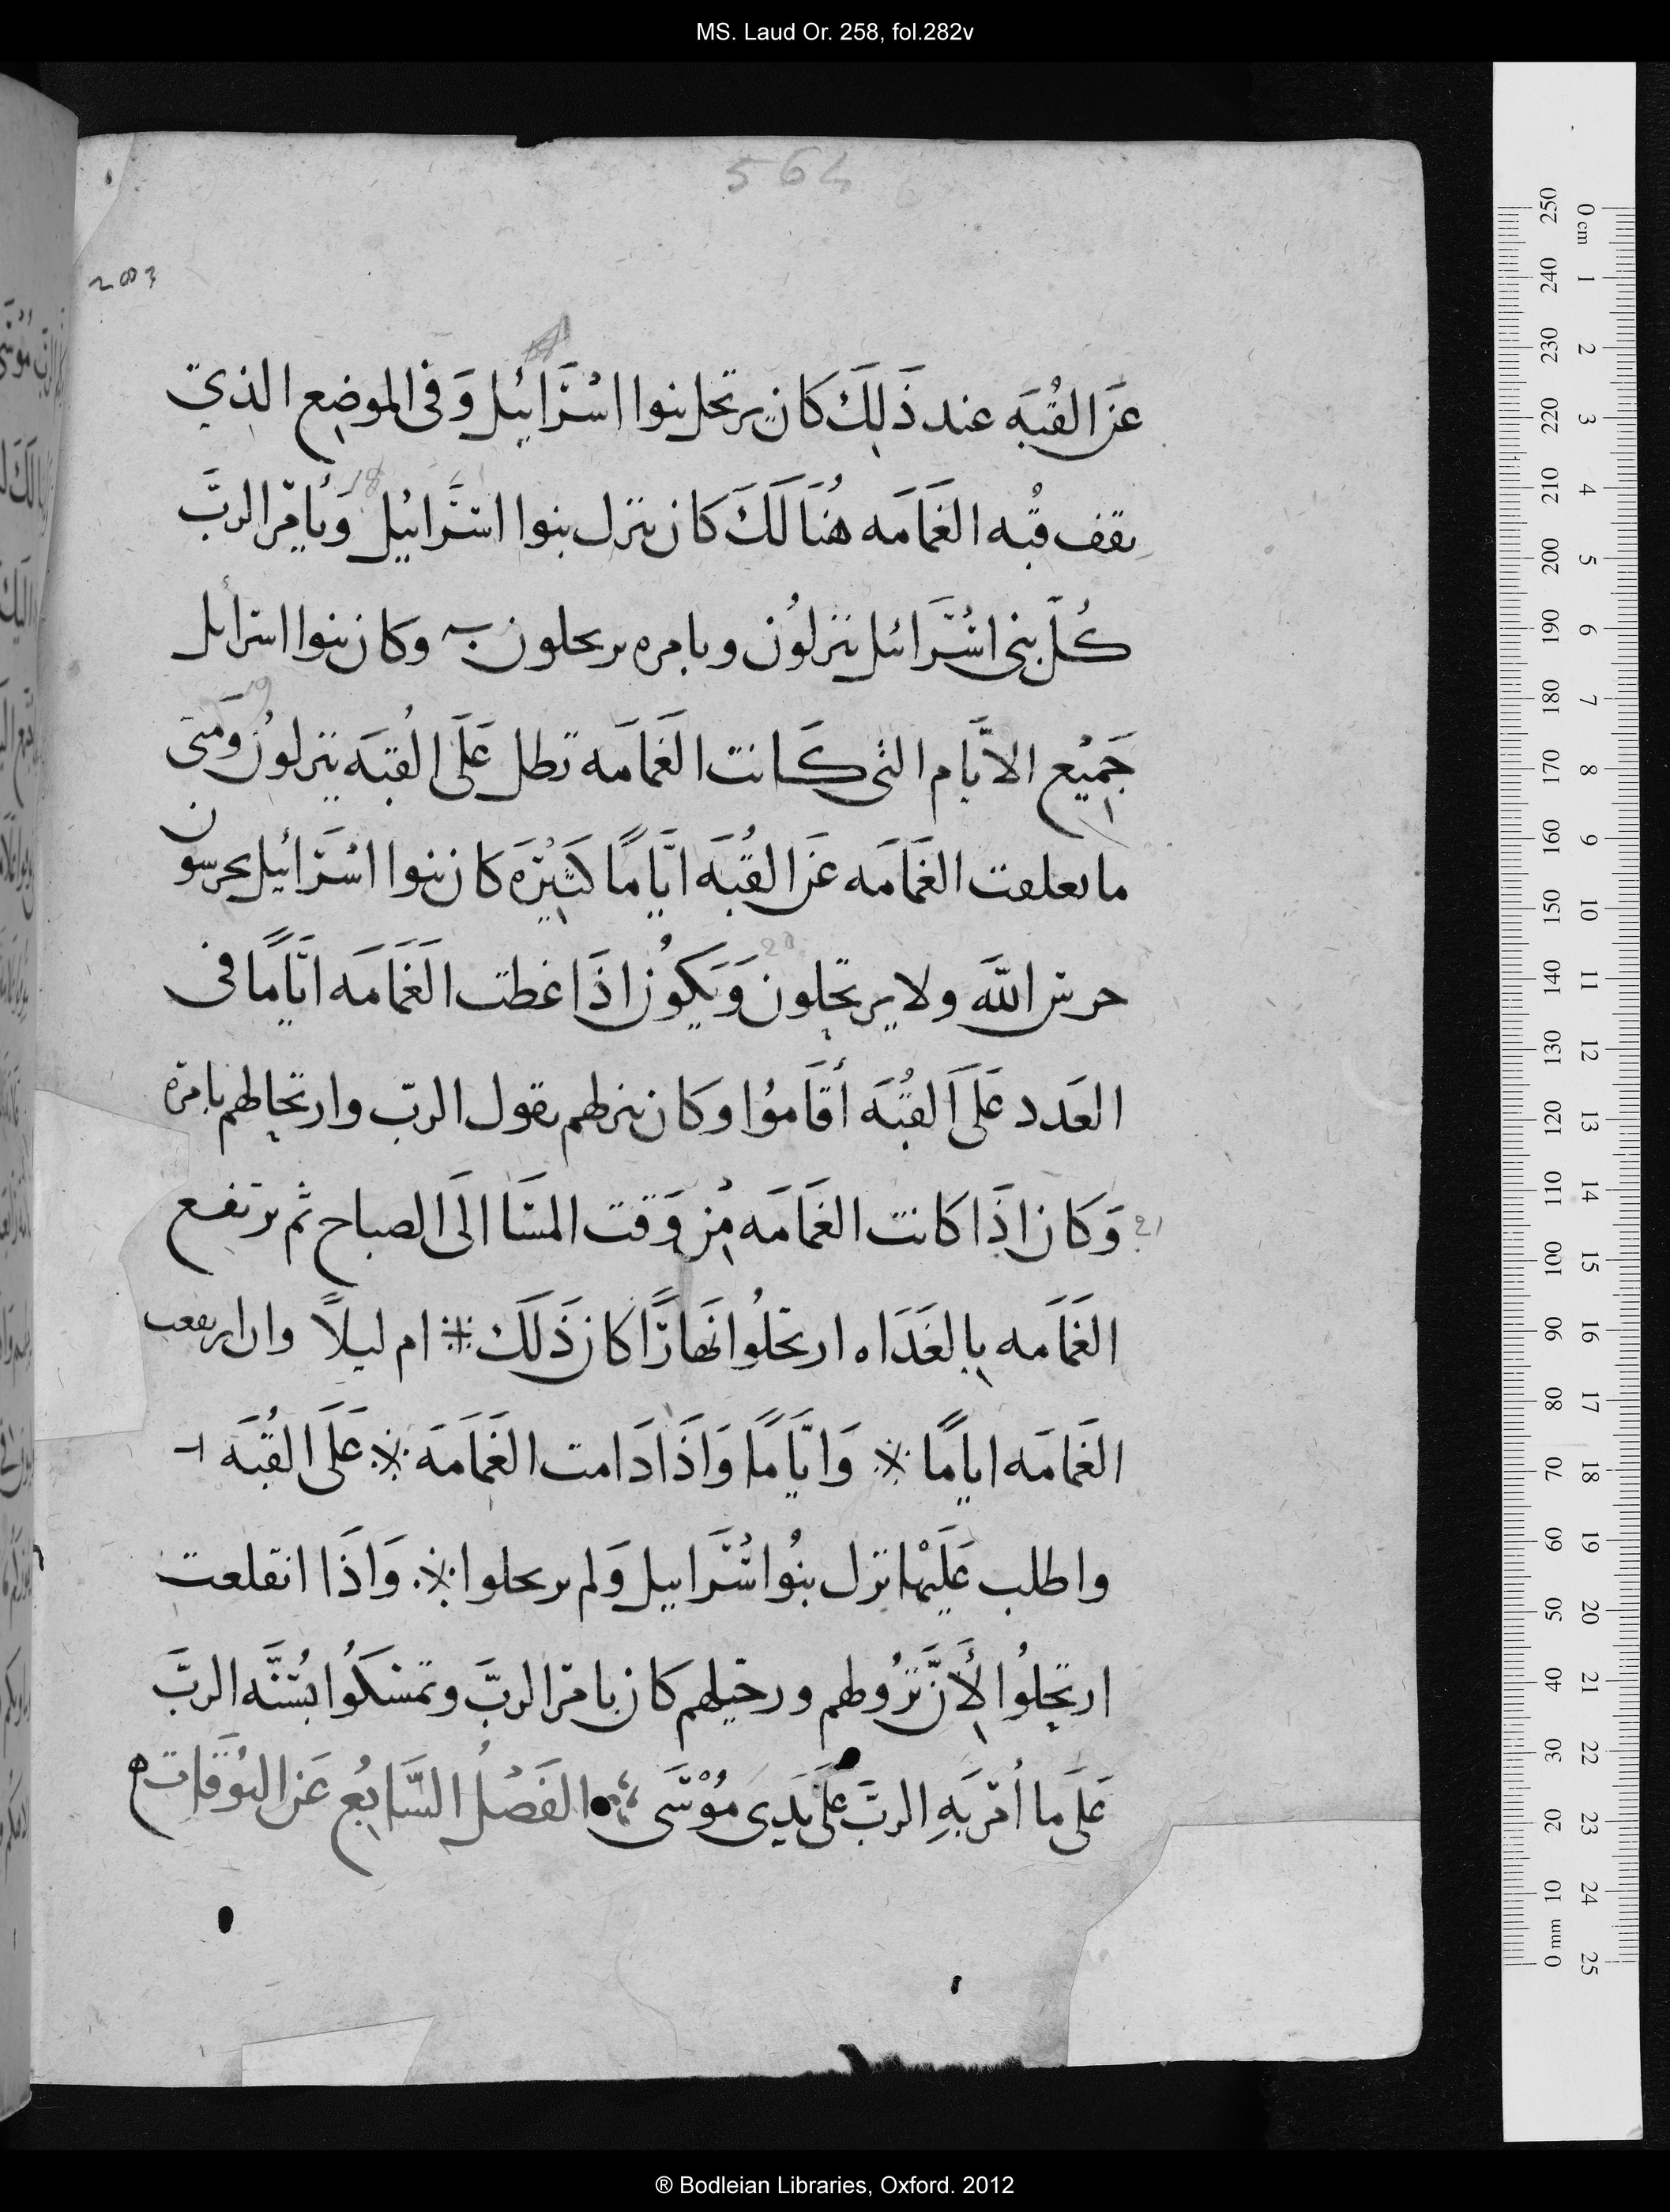 MS. Laud Or. 258, fol.282v
564
283
عَن القُبَه عند ذَلِكَ كان يرتحل بنوا اسْرَائيل وَفى الموضِع الذي
يقف قُبه الغَمَامَه هُنَالَكَ كان ينزل بنوا اسْرَائيل 18 وَبأمِر الربَّ
كُلّ بنى اسْرَائيل ينزلوُن وبامِره يرتحلون وكان بنوا اسرائل
19
جَمِيْع الايَّام التى كَانت الغَمَامَه تظل عَلَى القُبَه ينزلوُن وَمتى
ما تعلقت الغَمَامَه عَن القُبَه ايَّامًا كَثِيْرَه كان بنوا اسْرَائيل يحرسون
20
حرس اللّه ولا يرتحِلون وَيَكوُن اذَا غطت الغَمَامَه ايَّامًا فى
العَدد عَلَى القُبَه أقَاموُا وكان ينزلهم بقول الربّ وارتحِالهم بامره
21 وَكان اذَا كانت الغَمَامَه مِن وَقت المسَا الَى الصباح ثم يرتفِع
الغَمَامه بِالغدَاه ارتحلُوا نَهَارًا كان ذَلَك ام ليلاً وان ارتفعت
الغَمَامَه ايامًا وَايَّامًا وَاذَا دَامت الغَمَامَه عَلَى القُبَه
واظلت عَليْها نزل بنوُا اسْرَاييل وَلم يرتحلوا وَاذَا انقلعت
ارتحِلوُا لأِنَّ نزُولهم ورحيلهم كان بامر الربَّ وتمسَكُوا بسُنَّه الربَّ
عَلَى ما أمَر بَهِ الربَّ عَلَى يَدِي مُوْسَى الفَصْلُ السَّابِعُ عَن البُوقَات
® Bodleian Libraries, Oxford. 2012